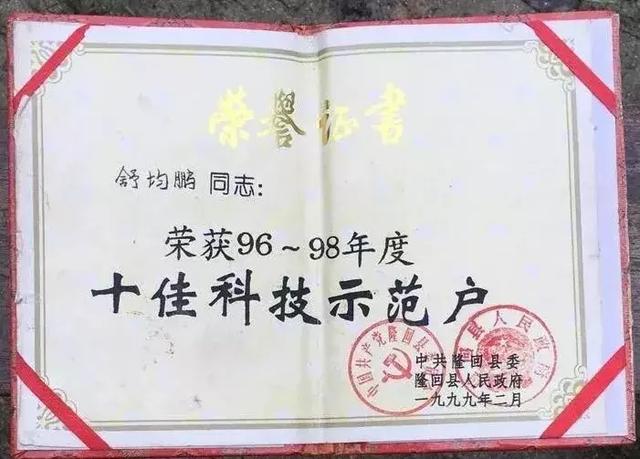 荣誉证书
舒均鹏 同志:
荣获96～98年度
十佳科技示范户
中共隆回县委
隆回县人民政府
一九九九年二月
中国共产党隆回县
县人民政府